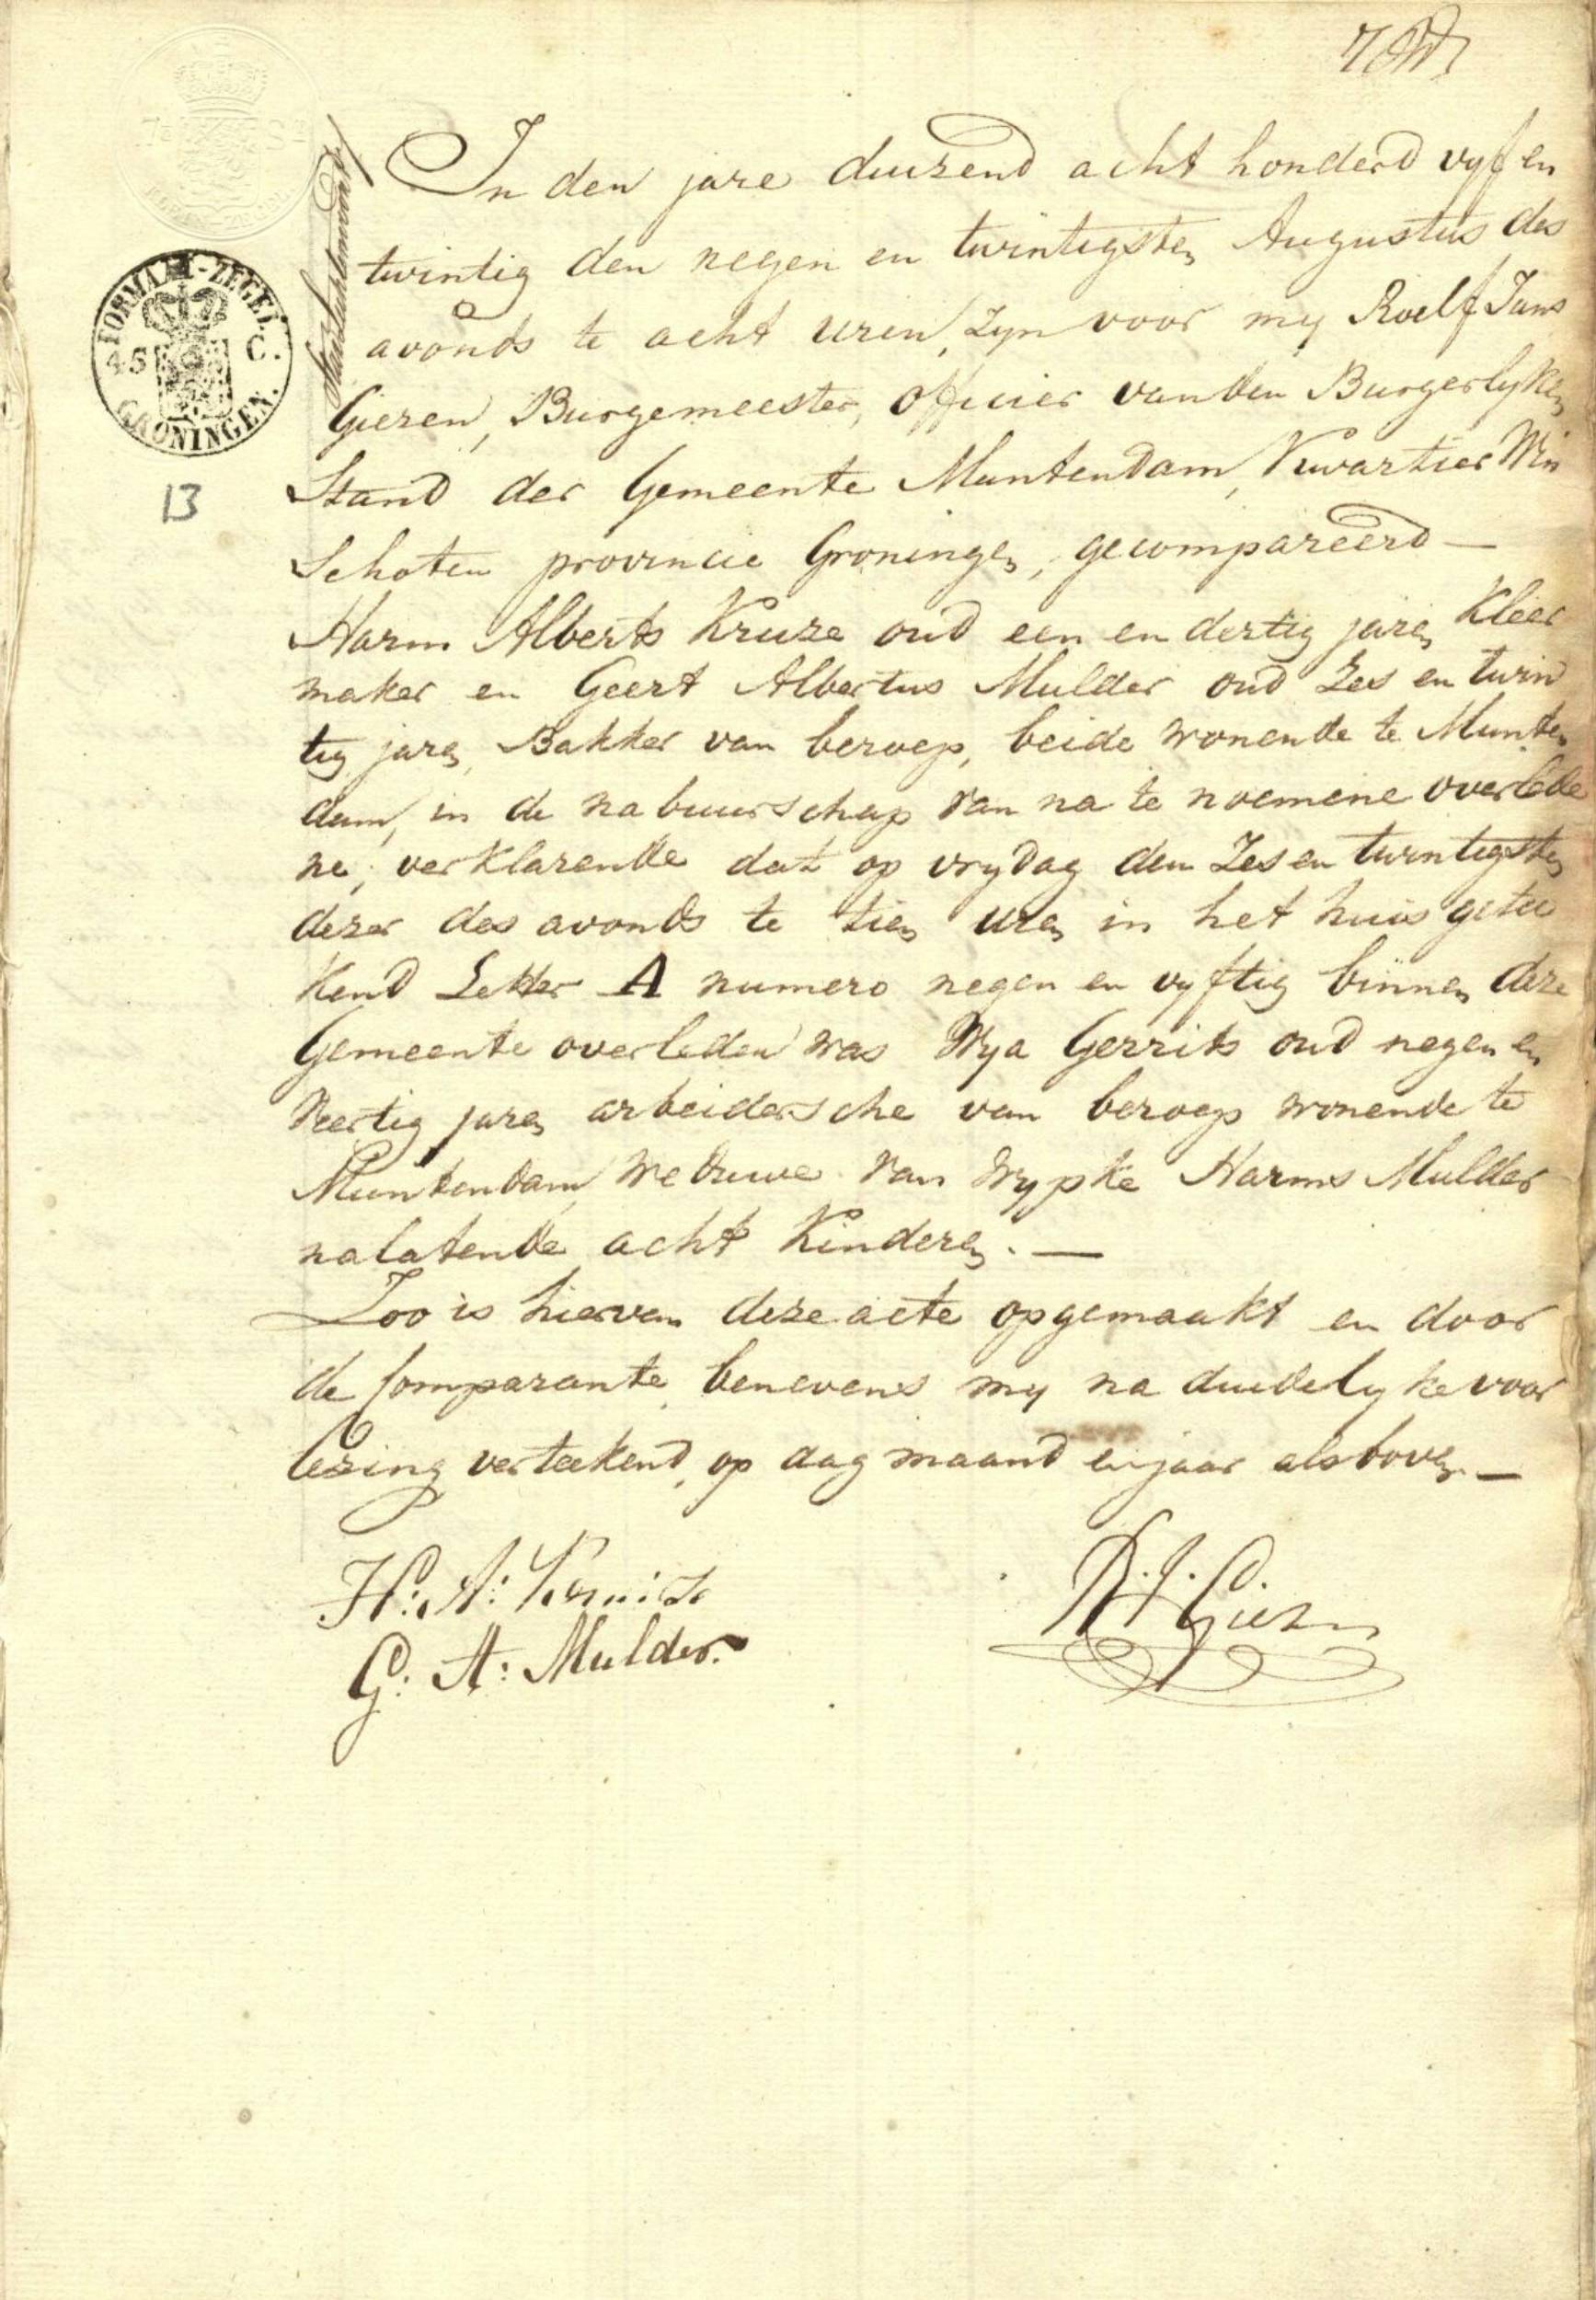 In den jare duizend acht honderd vyf en
twintig den negen en twintigsten Augustus des
avonds te acht uren, zyn voor my Roelf Jans
Giezen, Burgemeester, officier van den Burgerlyken
Stand der Gemeente Muntendam, Kwartier Win
FORMAAT-ZEGEL.
45 C.
GRONINGEN.
13
schoten provincie Groningen, gecompareerd —
Harm Alberts Kruze oud een en dertig jaren Kleer
maker en Geert Albertus Mulder oud zes en twin
tig jaren, Bakker van beroep, beide wonende te Munten
dam, in de nabuurschap van na te noemene overlede
ne, verklarende dat op vrydag den zes en twintigsten
dezer des avonds te tien uren in het huis getee
kend Letter A numero negen en vyftig binnen deze
Gemeente overleden was Wya Gerrits oud negen en
veertig jaren arbeidersche van beroep wonende te
Muntendam, weduwe van Wypke Harms Mulder
nalatende acht Kinderen. —
Zoo is hiervan deze acte opgemaakt en door
de Comparante, benevens my na duidelyke voor
lezing verteekend, op dag maand en jaar als boven —
H: A: Kruise
G: A: Mulder.
R. J. Giezen